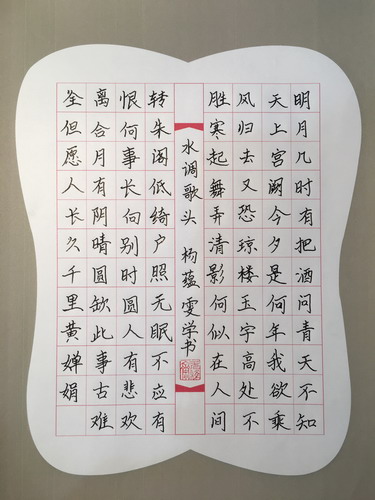 明月几时有把酒问青天不知
天上宫阙今夕是何年我欲乘
风归去又恐琼楼玉宇高处不
胜寒起舞弄清影何似在人间
水调歌头 杨蕴雯学书
转朱阁低绮户照无眠不应有
恨何事长向别时圆人有悲欢
离合月有阴晴圆缺此事古难
全但愿人长久千里黄婵娟